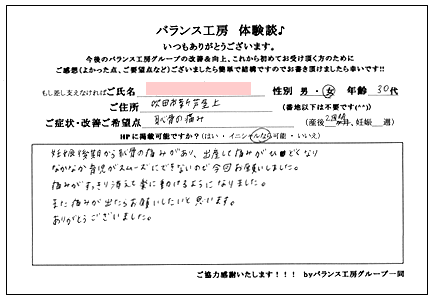 バランス工房 体験談♪
いつもありがとうございます。
今後のバランス工房グループの改善&向上、これから初めてお受け頂く方のために
ご感想(よかった点、ご要望点など)ございましたら簡単で結構ですのでお書き頂けましたら幸いです!!
もし差し支えなければご氏名 性別 男・女 年齢 30代
ご住所 吹田市 (番地以下は不要です(^^))
ご症状・改善ご希望点 恥骨の痛み (産後 ヶ月、妊娠 週)
HPに掲載可能ですか?(はい・イニシャルなら可能・いいえ)
妊娠後期から恥骨の痛みがあり、出産して痛みがひどくなり
なかなか育児がスムーズにできないので今回お願いしました。
痛みがすっきり消えて楽に動けるようになりました。
また痛みが出たらお願いしたいと思います。
ありがとうございました。
ご協力感謝いたします!!! byバランス工房グループ一同